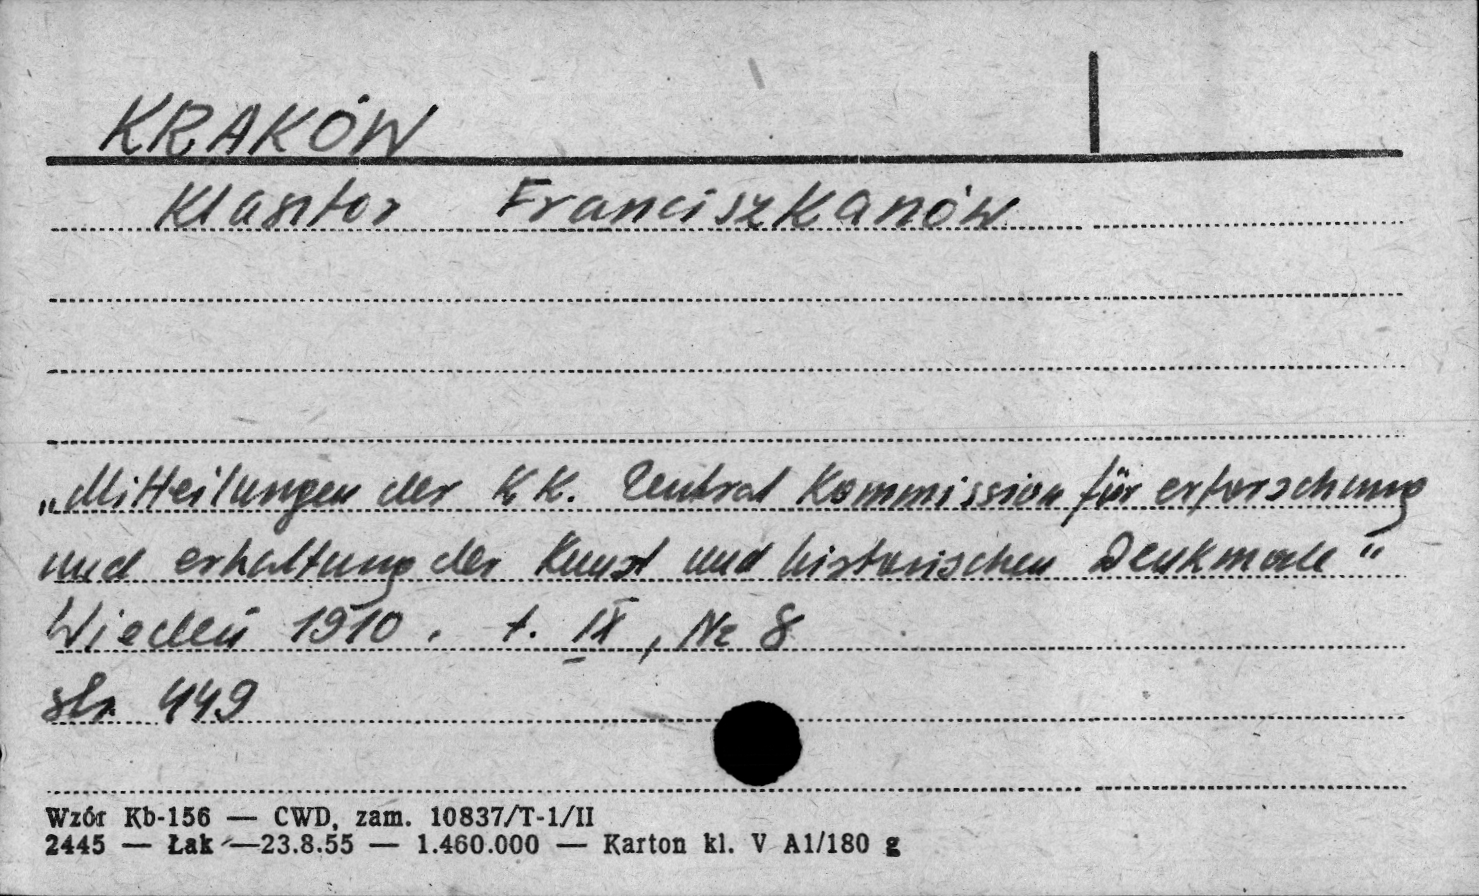 KRAKÓW
Klasztor Franciszkanów
„Mitteilungen der K K. Zentral Kommission für erforschung
und erhaltung der Kunst und historischen Denkmale"
Wiedeń 1910. t. IX, Nr 8
str. 449
Wzór Kb-156 — CWD, zam. 10837/T-1/II
2445 — Łak —23.8.55 — 1.460.000 — Karton kl. V A1/180 g